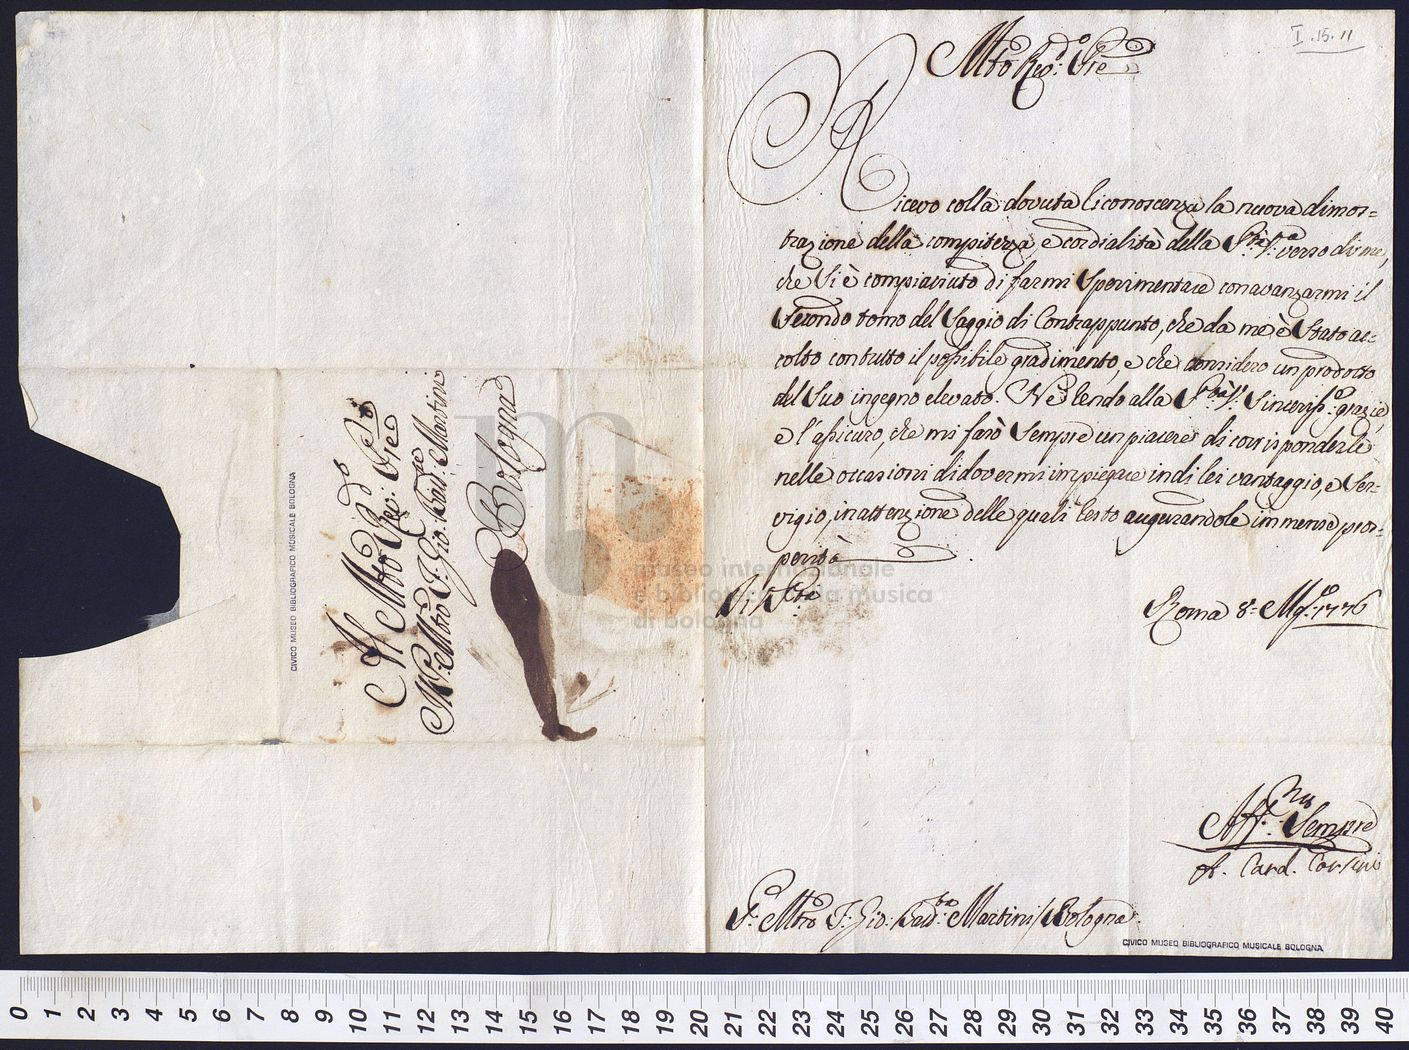 I. 15. 11
Mto Revdo: Pre
Ricevo colla dovuta riconoscenza la nuova dimos-
trazione della compitezza, e cordialità della P.tà V.a verso di me,
che si è compiaciuto di farmi sperimentare con avanzarmi il
secondo tomo del Saggio di Contrappunto, che da me è stato ac-
colto con tutto il possibile gradimento, e che considero un prodotto
del suo ingegno elevato. Ne rendo alla P.tà V.a sinceriss.e grazie,
e l'assicuro, che mi farò sempre un piacere di corrisponderle
nelle occasioni di dovermi impiegare in di lei vantaggio, e ser-
vigio, in attenzione delle quali resto augurandole immense pros-
perità
Roma 8: Mag.o 1776
Aff.mo Sempre
A. Card. Corsini
P. Mro F: Gio: Batt.a Martini / Bologna.
CIVICO MUSEO BIBLIOGRAFICO MUSICALE BOLOGNA
Al Mto Revdo: Pre Pro
Il P. Mro F: Gio: Batt.a Martini
Bologna
CIVICO MUSEO BIBLIOGRAFICO MUSICALE BOLOGNA
museo internazionale
e biblioteca della musica
di bologna
0 1 2 3 4 5 6 7 8 9 10 11 12 13 14 15 16 17 18 19 20 21 22 23 24 25 26 27 28 29 30 31 32 33 34 35 36 37 38 39 40